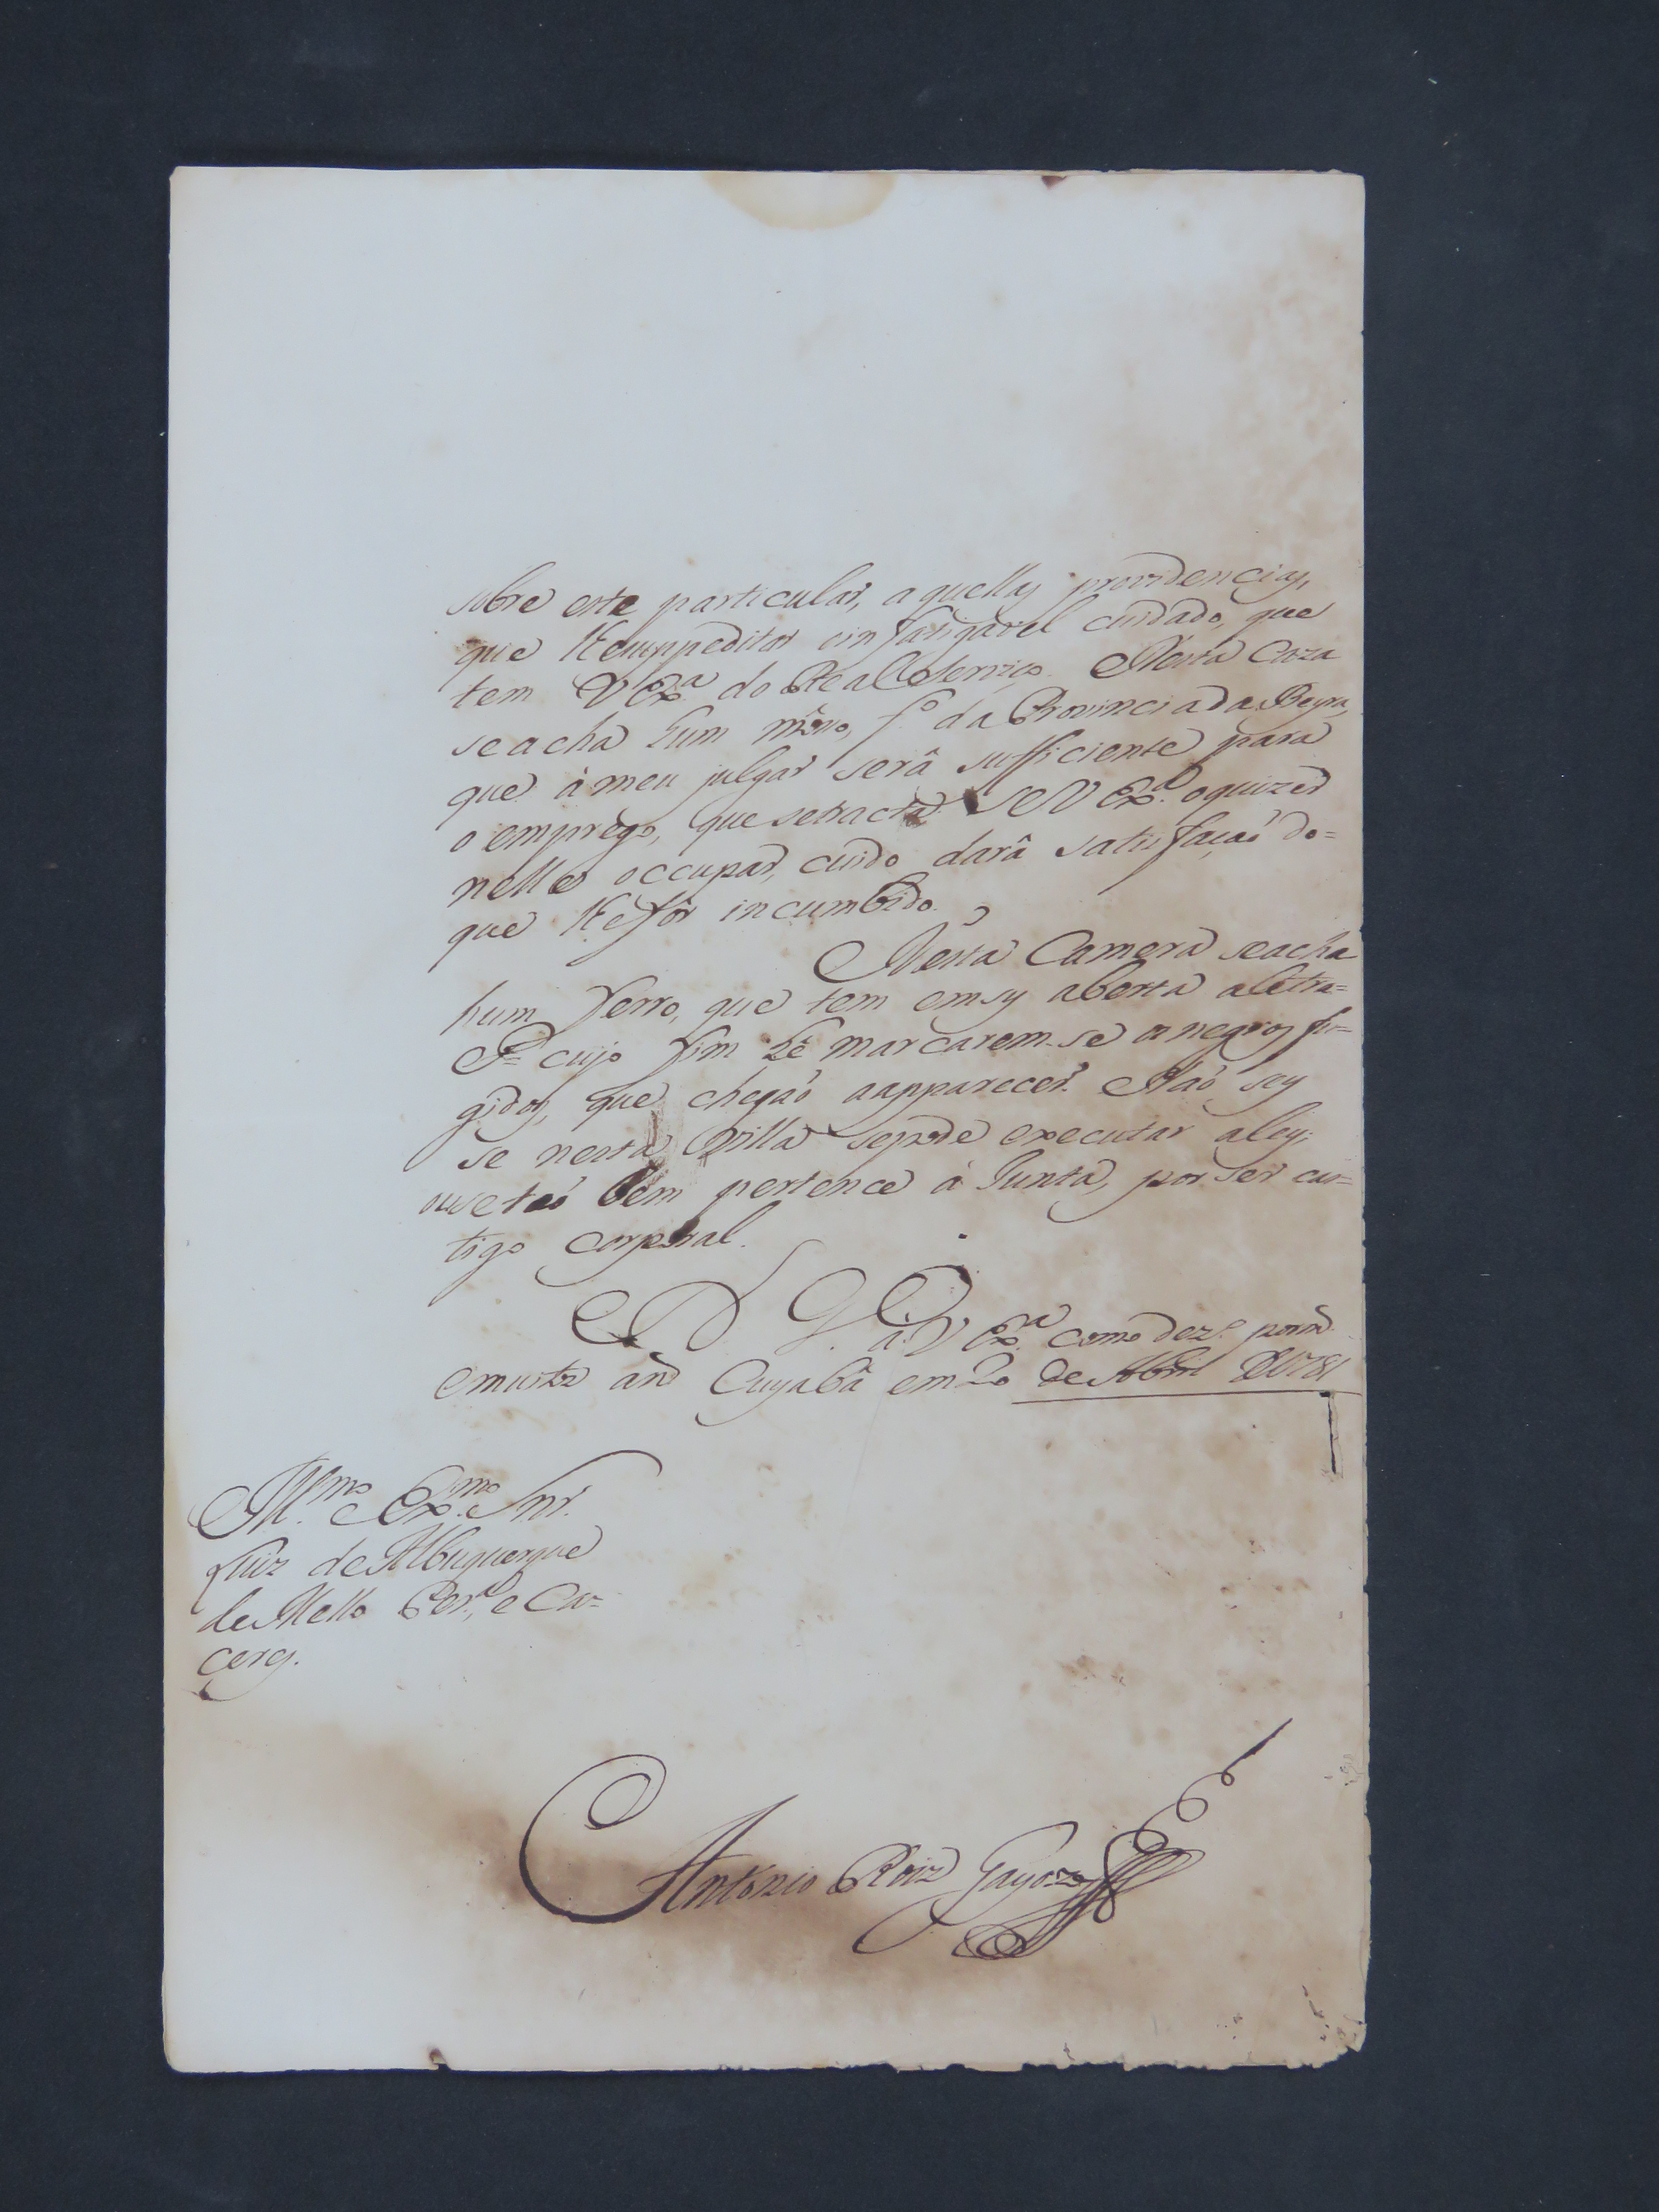 sobre este particular, aquellas providencias,
que lhe suppeditar o infatigavel cuidado, que
tem V Exª do Real Serviço. Nesta Caza
se acha hum moço, fº da Provincia da Beyra,
que à meu julgar serâ sufficiente para
o emprego, que se tracta. Se V Exª o quizer
nelle occupar, cuido darâ satisfaçaõ do=
que lhe fôr incumbido.
Nesta Camera se acha
hum ferro, que tem em sy aberta a letra=
F= cujo fim hê marcarem-se os negros fu=
gidos, que chegaõ a apparecer. Naõ sey
se nesta Villa se pode executar a ley;
ou se taõ bem pertence à Junta, por ser cas=
tigo corporal.
D. G. a V Exª como dez.º por m.
e muitos an.º Cuyabâ em 20 de Abril de 1781
Ill.mo e Ex.mo Snr.
Luiz de Albuquerque
de Mello Per.ª, e Ca=
ceres.
Antonio Roiz Gayozo